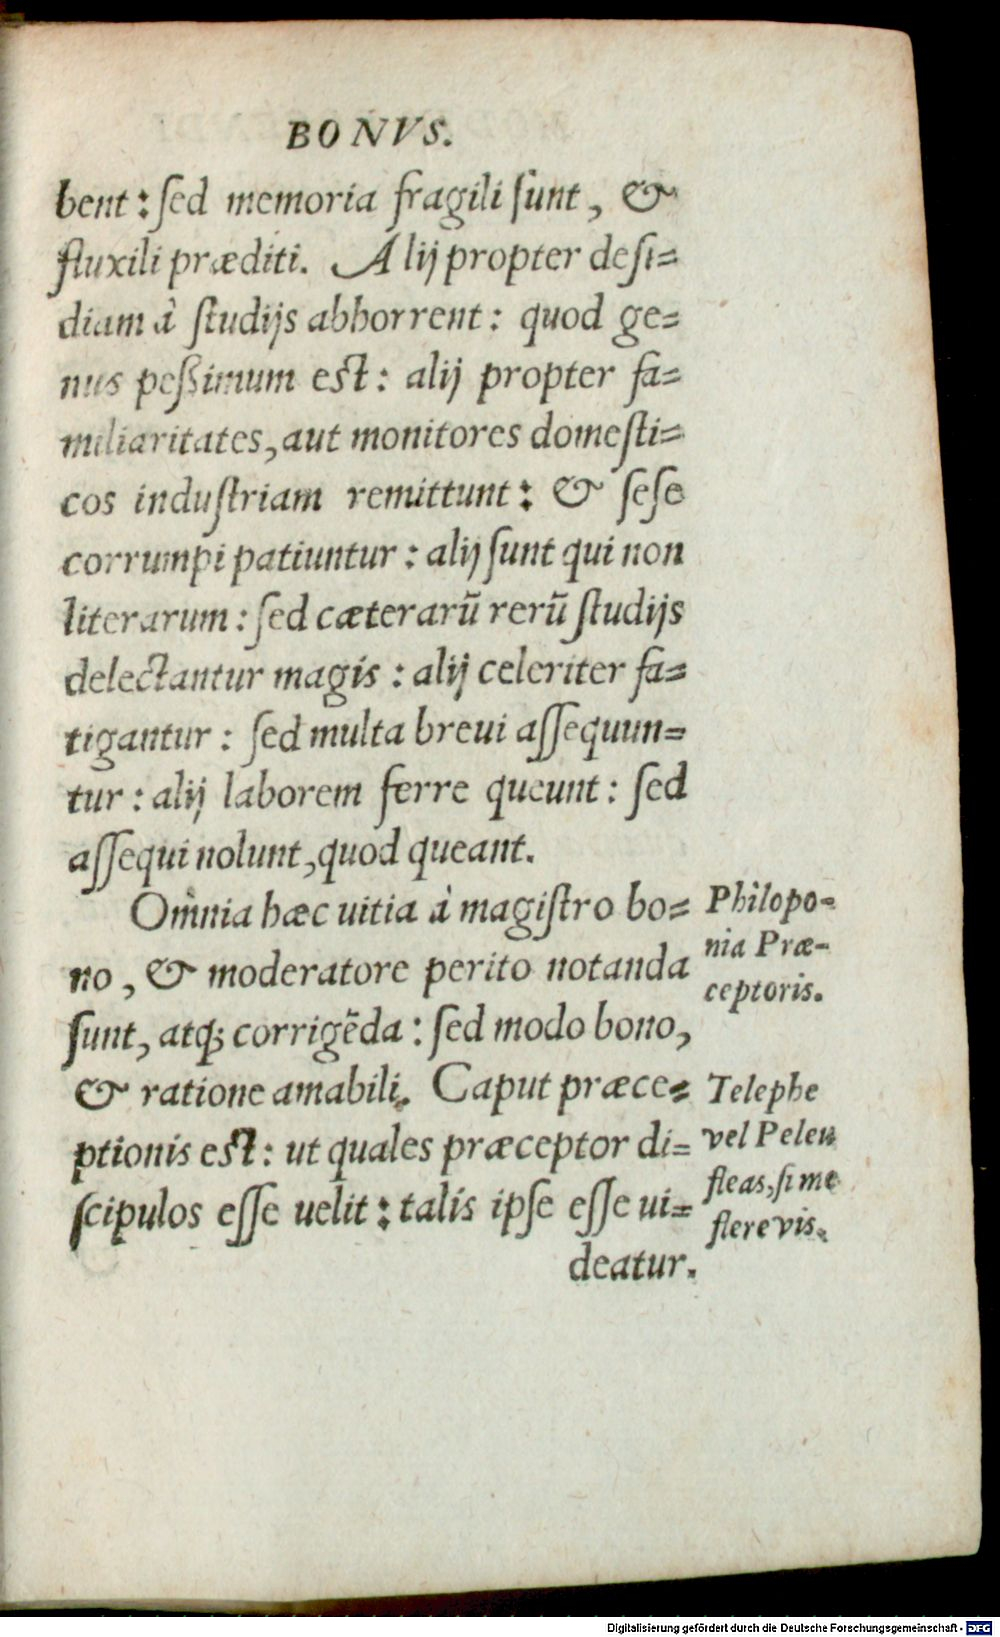 BONVS.
bent: sed memoria fragili sunt, &
fluxili præditi. Alij propter desi=
diam à studijs abhorrent: quod ge=
nus peßimum est: alij propter fa=
miliaritates, aut monitores domesti=
cos industriam remittunt: & sese
corrumpi patiuntur: alij sunt qui non
literarum: sed cæterarũ rerũ studijs
delectantur magis: alij celeriter fa=
tigantur: sed multa breui assequun=
tur: alij laborem ferre queunt: sed
assequi nolunt, quod queant.
Omnia hæc uitia à magistro bo=
no, & moderatore perito notanda
sunt, atq; corrigẽda: sed modo bono,
& ratione amabili. Caput præce=
ptionis est: ut quales præceptor di=
scipulos esse uelit: talis ipse esse ui=
deatur.
Philopo=
nia Præ=
ceptoris.
Telephe
vel Peleu
fleas, si me
flere vis.
Digitalisierung gefördert durch die Deutsche Forschungsgemeinschaft - DFG